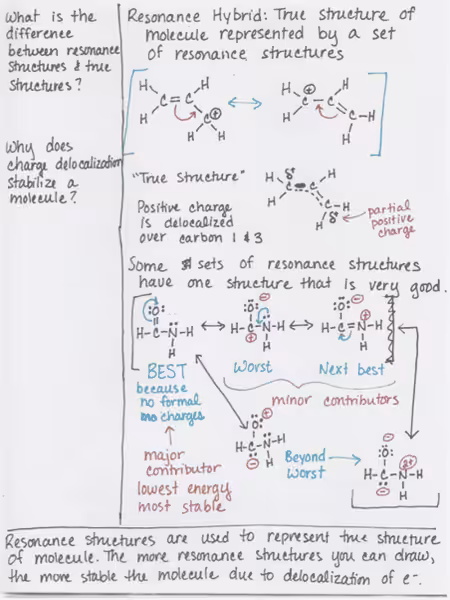 What is the
difference
between resonance
structures & true
structures?
Why does
charge delocalization
stabilize a
molecule?
Resonance Hybrid: True structure of
molecule represented by a set
of resonance structures
H H H H
C = C C - C
H C H C - H
H H H
"True Structure"
Positive charge
is delocalized
over carbon 1 & 3
H δ+ H
C C
H C - H
H δ+
partial
positive
charge
Some sets of resonance structures
have one structure that is very good.
:O: :O: :O:
H-C-N-H H-C-N-H H-C=N-H
H H H
BEST
because
no formal
charges
Worst
Next best
minor contributors
major
contributor
lowest energy
most stable
:O:
H-C-N-H
H
Beyond
worst
:O:
H-C-N-H
H
Resonance structures are used to represent true structure
of molecule. The more resonance structures you can draw,
the more stable the molecule due to delocalization of e-.